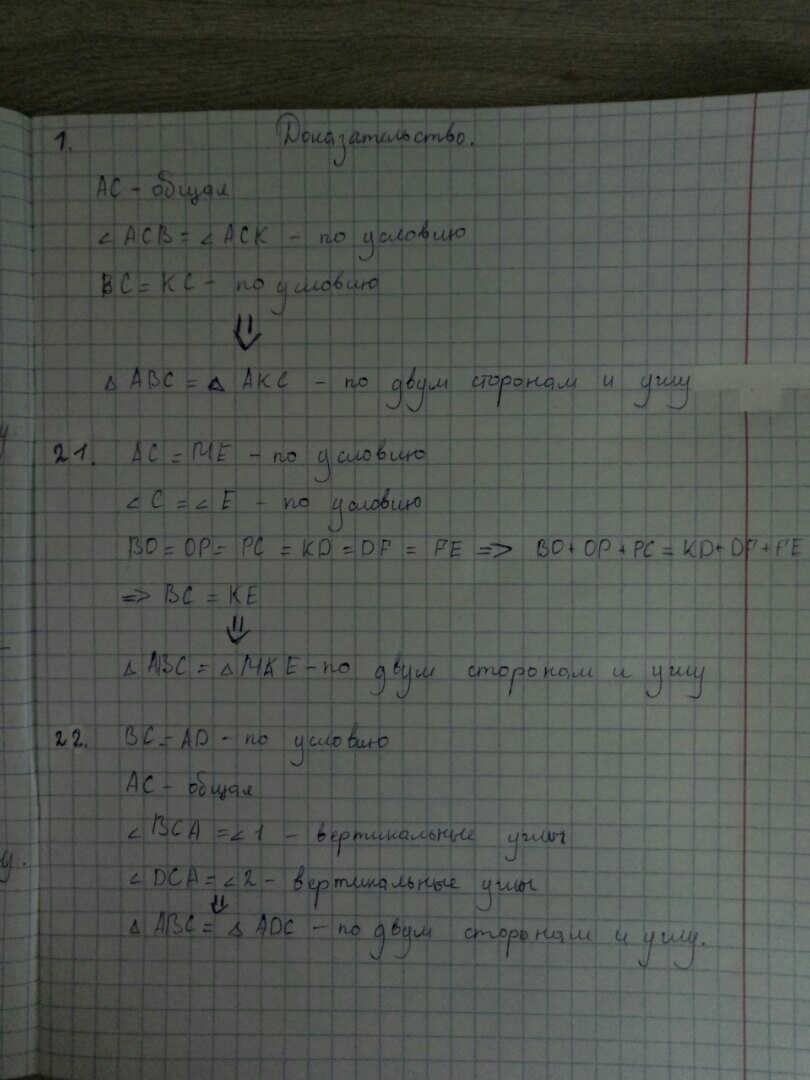 1. Доказательство.
AC - общая
∠ ACB = ∠ ACK - по условию
BC = KC - по условию
⇓
Δ ABC = Δ AKC - по двум сторонам и углу
21. AC = ME - по условию
∠ C = ∠ E - по условию
BO = OP = PC = KD = DF = FE => BO + OP + PC = KD + DF + FE
=> BC = KE
⇓
Δ ABC = Δ MKE - по двум сторонам и углу
22. BC = AD - по условию
AC - общая
∠ BCA = ∠ 1 - вертикальные углы
∠ DCA = ∠ 2 - вертикальные углы
⇓
Δ ABC = Δ ADC - по двум сторонам и углу.